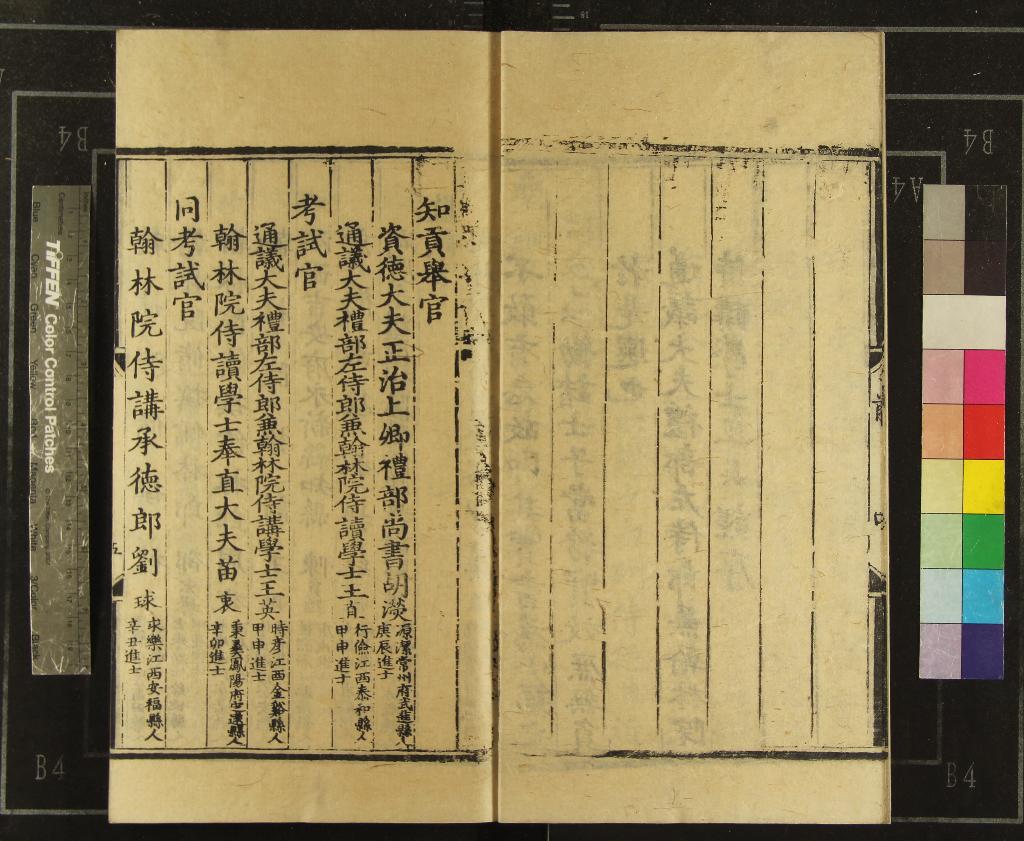 知貢舉官
資德大夫正治上卿禮部尚書胡濙
源潔常州府武進縣人
庚辰進士
通議大夫禮部左侍郎兼翰林院侍讀學士王直
行儉江西泰和縣人
甲申進士
考試官
通議大夫禮部左侍郎兼翰林院侍講學士王英
時彥江西金谿縣人
甲申進士
翰林院侍讀學士奉直大夫苗衷
秉彝鳳陽府定遠縣人
辛卯進士
同考試官
翰林院侍講承德郎劉球
求樂江西安福縣人
辛丑進士
五
TIFFEN Color Control Patches
Centimetres
Blue
Cyan
Green
Yellow
Red
Magenta
White
3/Color
Black
B4
B4
A4
B4
B4